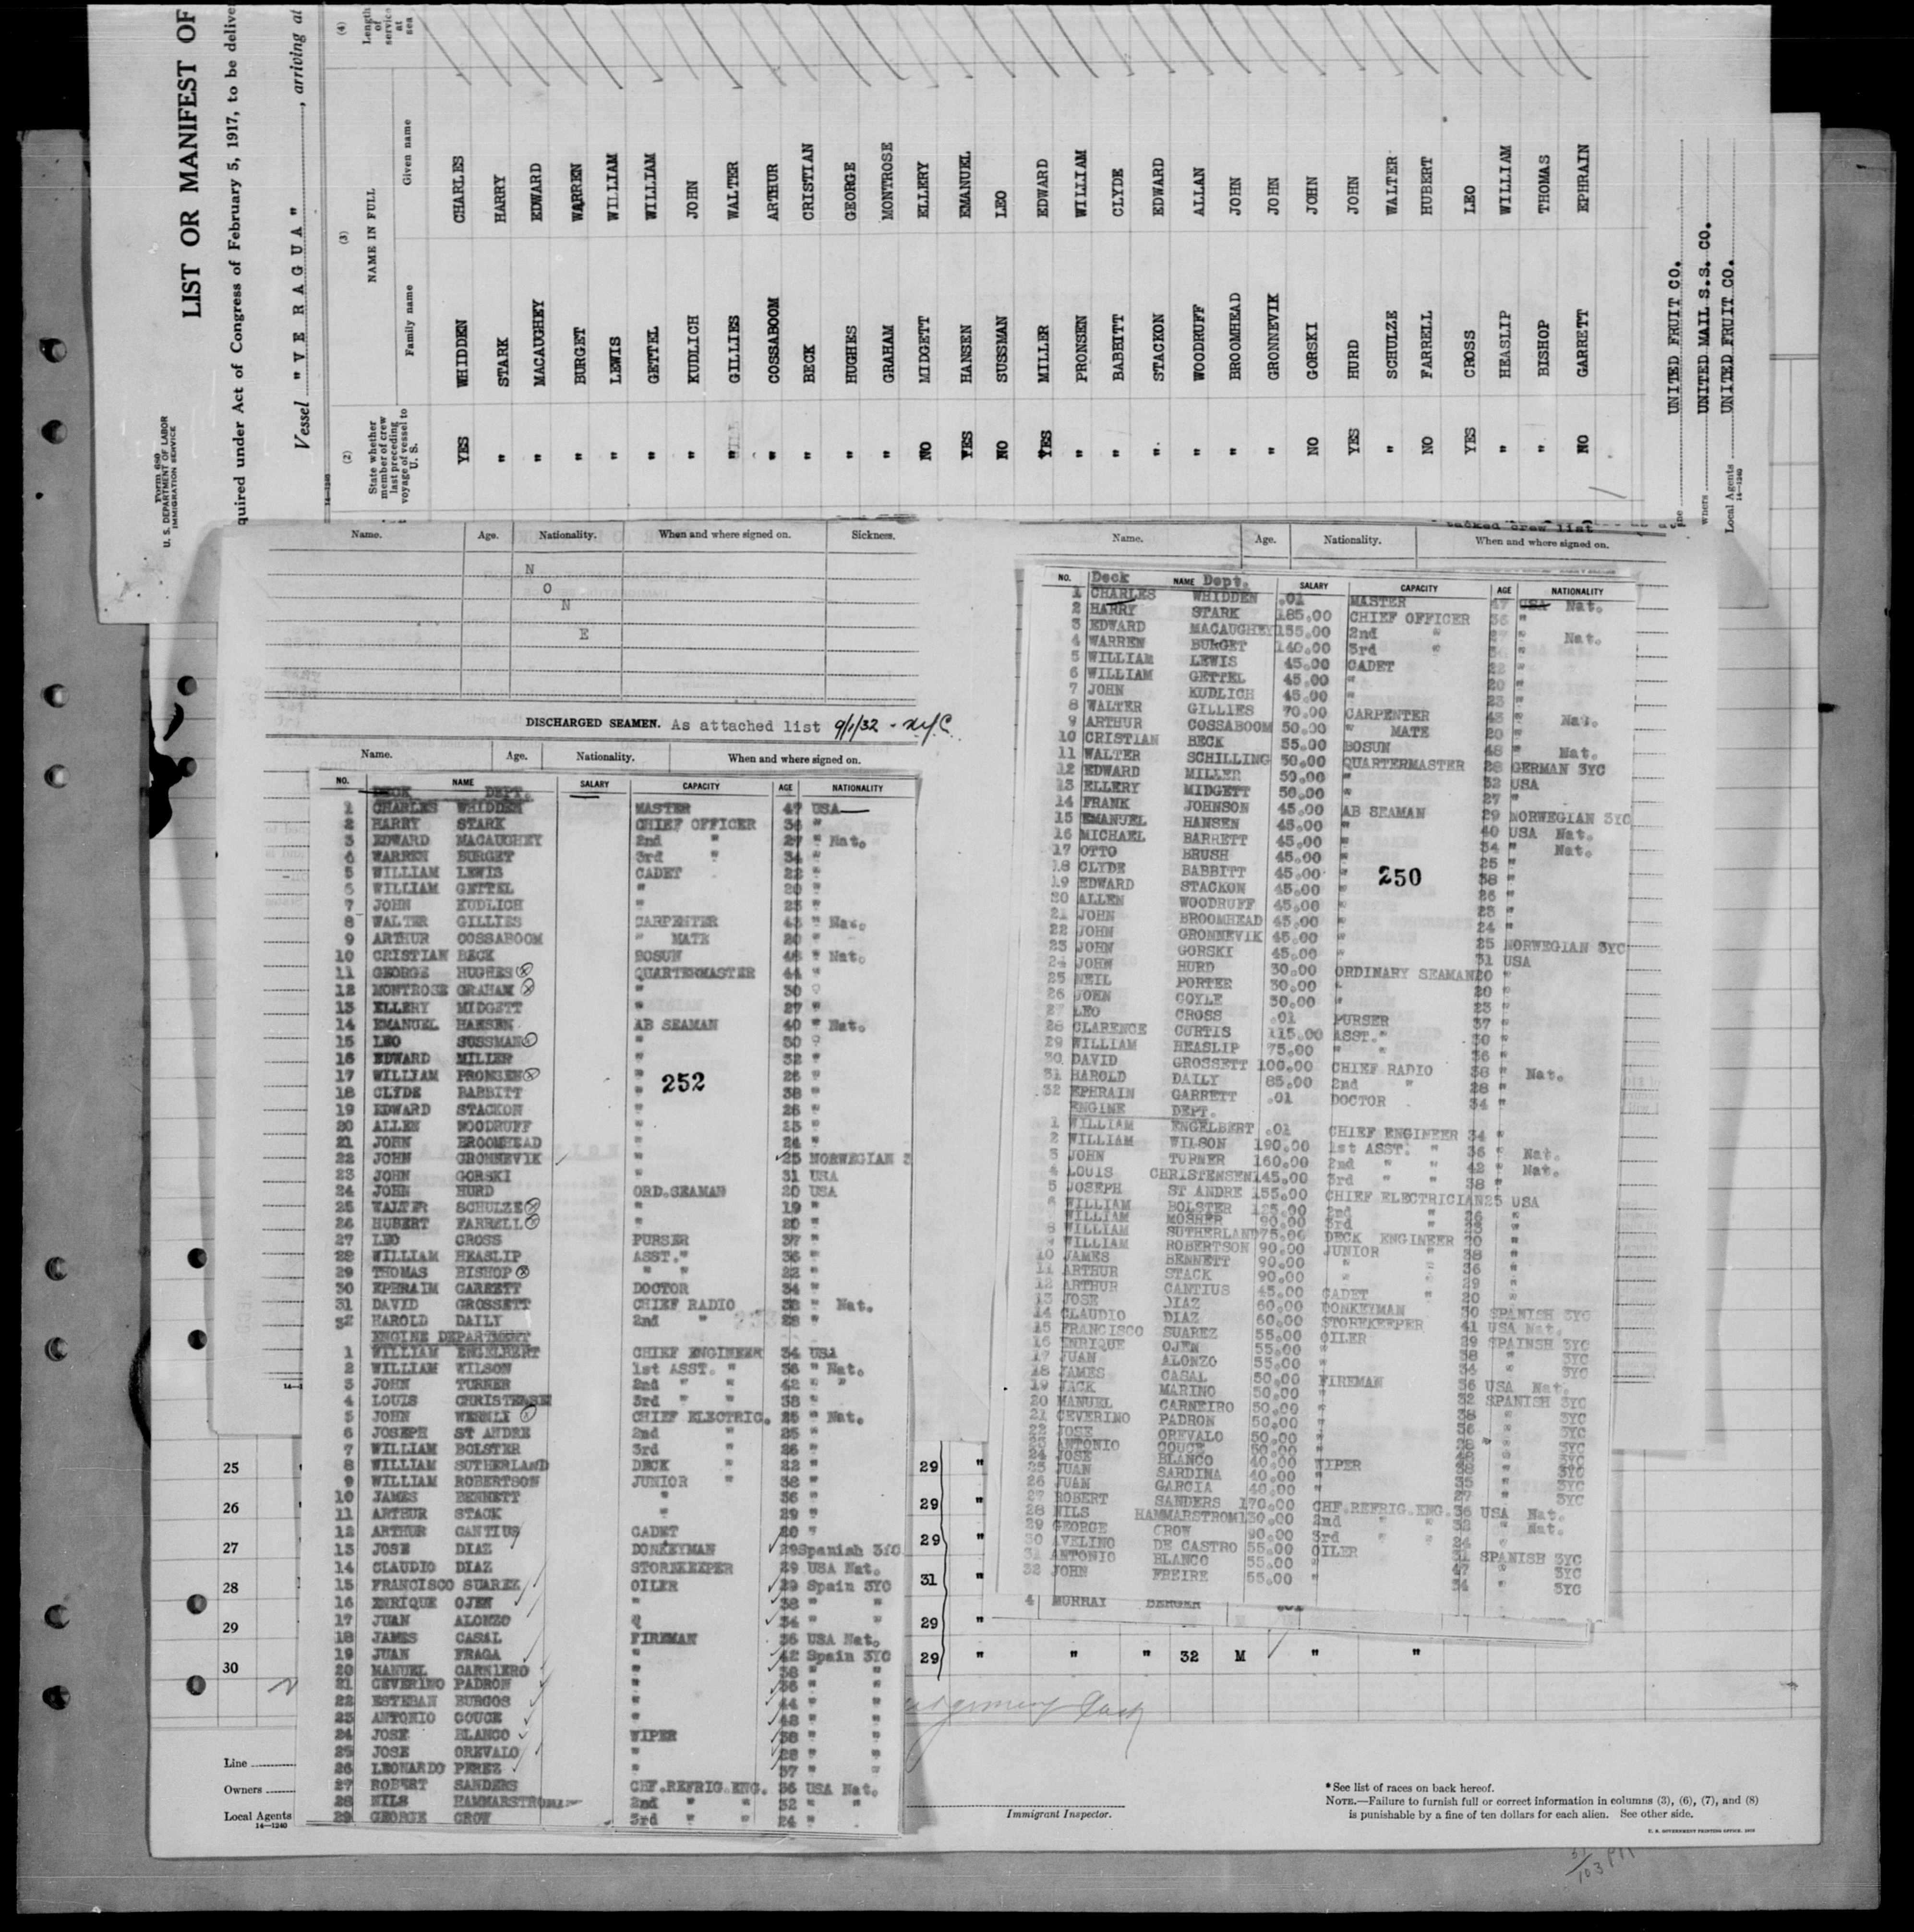 Form 680
U. S. DEPARTMENT OF LABOR
IMMIGRATION SERVICE
LIST OR MANIFEST OF
quired under Act of Congress of February 5, 1917, to be deliver
Vessel "VERAGUA", arriving at
(2) (3) (4)
State whether member of crew last preceding voyage of vessel to U. S.
NAME IN FULL
Family name Given name
Length of service at sea
YES WHIDDEN CHARLES
" STARK HARRY
" MACAUGHEY EDWARD
" BURGET WARREN
" LEWIS WILLIAM
" GETTEL WILLIAM
" KUDLICH JOHN
" GILLIES WALTER
" COSSABOOM ARTHUR
" BECK CRISTIAN
" HUGHES GEORGE
" GRAHAM MONTROSE
NO MIDGETT ELLERY
YES HANSEN EMANUEL
NO SUSSMAN LEO
YES MILLER EDWARD
" PRONSEN WILLIAM
" BABBITT CLYDE
" STACKON EDWARD
" WOODRUFF ALLAN
" BROOMHEAD JOHN
" GRONNEVIK JOHN
NO GORSKI JOHN
YES HURD JOHN
" SCHULZE WALTER
NO FARRELL HUBERT
YES CROSS LEO
" HEASLIP WILLIAM
" BISHOP THOMAS
NO GARRETT EPHRAIN
ne UNITED FRUIT CO.
wners UNITED MAIL S.S. CO.
Local Agents UNITED FRUIT CO.
14-1240
Name. Age. Nationality. When and where signed on. Sickness.
N
O
N
E
DISCHARGED SEAMEN. As attached list 9/1/32 - N.Y.C.
Name. Age. Nationality. When and where signed on.
NO. NAME SALARY CAPACITY AGE NATIONALITY
DECK DEPT.
1 CHARLES WHIDDEN MASTER 47 USA
2 HARRY STARK CHIEF OFFICER 36 "
3 EDWARD MACAUGHEY 2nd " 27 " Nat.
4 WARREN BURGET 3rd " 34 "
5 WILLIAM LEWIS CADET 22 "
6 WILLIAM GETTEL " 20 "
7 JOHN KUDLICH " 23 "
8 WALTER GILLIES CARPENTER 43 " Nat.
9 ARTHUR COSSABOOM " MATE 20 "
10 CRISTIAN BECK BOSUN 48 " Nat.
11 GEORGE HUGHES QUARTERMASTER 44 "
12 MONTROSE GRAHAM " 30 "
13 ELLERY MIDGETT " 27 "
14 EMANUEL HANSEN AB SEAMAN 40 " Nat.
15 LEO SUSSMAN " 30 "
16 EDWARD MILLER " 32 "
17 WILLIAM PRONSEN " 26 "
252
18 CLYDE BABBITT " 38 "
19 EDWARD STACKON " 26 "
20 ALLEN WOODRUFF " "
21 JOHN BROOMHEAD " 24 "
22 JOHN GRONNEVIK " 25 NORWEGIAN 3
23 JOHN GORSKI " 31 USA
24 JOHN HURD ORD.SEAMAN 20 USA
25 WALTER SCHULZE " 19 "
26 HUBERT FARRELL " 20 "
27 LEO CROSS PURSER 37 "
28 WILLIAM HEASLIP ASST." 36 "
29 THOMAS BISHOP " " 22 "
30 EPHRAIM GARRETT DOCTOR 34 "
31 DAVID GROSSETT CHIEF RADIO 38 " Nat.
32 HAROLD DAILY 2nd " 28 "
ENGINE DEPARTMENT
1 WILLIAM ENGELBERT CHIEF ENGINEER 34 USA
2 WILLIAM WILSON 1st ASST. " 36 " Nat.
3 JOHN TURNER 2nd " " 42 " "
4 LOUIS CHRISTENSEN 3rd " " 38 "
5 JOHN WERNLI CHIEF ELECTRIC. 25 " Nat.
6 JOSEPH ST ANDRE 2nd " 25 "
7 WILLIAM BOLSTER 3rd " 26 "
8 WILLIAM SUTHERLAND DECK " 22 "
9 WILLIAM ROBERTSON JUNIOR " 38 "
10 JAMES BENNETT " 36 "
11 ARTHUR STACK " 29 "
12 ARTHUR CANTIUS CADET 20 "
13 JOSE DIAZ DONKEYMAN 29 Spanish 3YC
14 CLAUDIO DIAZ STOREKEEPER 29 USA Nat.
15 FRANCISCO SUAREZ OILER 29 Spain 3YC
16 ENRIQUE OJEN " 38 " "
17 JUAN ALONZO " 34 " "
18 JAMES CASAL FIREMAN 36 USA Nat.
19 JUAN FRAGA " 42 Spain 3YC
20 MANUEL CARNIERO " 38 " "
21 CEVERINO PADRON " 36 " "
22 ESTEBAN BURGOS " 44 " "
23 ANTONIO COUCE " 48 " "
24 JOSE BLANCO WIPER 38 " "
25 JOSE OREVALO " 28 " "
26 LEONARDO PEREZ " 37 " "
27 ROBERT SANDERS CHF.REFRIG.ENG. 36 USA Nat.
28 NILS HAMMARSTROM 2nd " " 32 " "
29 GEORGE CROW 3rd " " 24 "
tacked crew list
Name. Age. Nationality. When and where signed on.
NO. NAME SALARY CAPACITY AGE NATIONALITY
Deck Dept.
1 CHARLES WHIDDEN .01 MASTER 47 USA Nat.
2 HARRY STARK 185.00 CHIEF OFFICER 36 "
3 EDWARD MACAUGHEY 155.00 2nd " 27 " Nat.
4 WARREN BURGET 140.00 3rd " "
5 WILLIAM LEWIS 45.00 CADET 22 "
6 WILLIAM GETTEL 45.00 " 20 "
7 JOHN KUDLICH 45.00 " 23 "
8 WALTER GILLIES 70.00 CARPENTER 43 " Nat.
9 ARTHUR COSSABOOM 50.00 " MATE 20 "
10 CRISTIAN BECK 55.00 BOSUN 48 " Nat.
11 WALTER SCHILLING 50.00 QUARTERMASTER 28 GERMAN 3YC
12 EDWARD MILLER 50.00 " 32 USA
13 ELLERY MIDGETT 50.00 " 27 "
14 FRANK JOHNSON 45.00 AB SEAMAN 29 NORWEGIAN 3YC
15 EMANUEL HANSEN 45.00 " 40 USA Nat.
16 MICHAEL BARRETT 45.00 " 34 " Nat.
17 OTTO BRUSH 45.00 " 25 "
250
18 CLYDE BABBITT 45.00 " 38 "
19 EDWARD STACKON 45.00 " 26 "
20 ALLEN WOODRUFF 45.00 " 23 "
21 JOHN BROOMHEAD 45.00 " 24 "
22 JOHN GRONNEVIK 45.00 " 25 NORWEGIAN 3YC
23 JOHN GORSKI 45.00 " 31 USA
24 JOHN HURD 30.00 ORDINARY SEAMAN 20 "
25 NEIL PORTER 30.00 " 20 "
26 JOHN COYLE 30.00 " 23 "
27 LEO CROSS .01 PURSER 37 "
28 CLARENCE CURTIS 115.00 ASST." 30 "
29 WILLIAM HEASLIP 75.00 " " 36 "
30 DAVID GROSSETT 100.00 CHIEF RADIO 38 " Nat.
31 HAROLD DAILY 85.00 2nd " 28 "
32 EPHRAIN GARRETT .01 DOCTOR 34 "
ENGINE DEPT.
1 WILLIAM ENGELBERT .01 CHIEF ENGINEER 34 "
2 WILLIAM WILSON 190.00 1st ASST. " 36 " Nat.
3 JOHN TURNER 160.00 2nd " " 42 " Nat.
4 LOUIS CHRISTENSEN 145.00 3rd " " 38 "
5 JOSEPH ST ANDRE 155.00 CHIEF ELECTRICIAN 25 USA
6 WILLIAM BOLSTER 125.00 2nd " 26 "
7 WILLIAM MOSHER 90.00 3rd " "
8 WILLIAM SUTHERLAND 75.00 DECK ENGINEER "
9 WILLIAM ROBERTSON 90.00 JUNIOR " 38 "
10 JAMES BENNETT 90.00 " " 36 "
11 ARTHUR STACK 90.00 " " 29 "
12 ARTHUR CANTIUS 45.00 CADET 20 "
13 JOSE DIAZ 60.00 DONKEYMAN 30 SPANISH 3YC
14 CLAUDIO DIAZ 60.00 STOREKEEPER 41 USA Nat.
15 FRANCISCO SUAREZ 55.00 OILER 29 SPAINSH 3YC
16 ENRIQUE OJEN 55.00 " 38 " 3YC
17 JUAN ALONZO 55.00 " 34 " 3YC
18 JAMES CASAL 50.00 FIREMAN 36 USA Nat.
19 JACK MARINO 50.00 " 32 SPANISH 3YC
20 MANUEL CARNEIRO 50.00 " 38 " 3YC
21 CEVERINO PADRON 50.00 " 36 " 3YC
22 JOSE OREVALO 50.00 " 28 " 3YC
23 ANTONIO COUCE 50.00 " 48 " 3YC
24 JOSE BLANCO 40.00 WIPER 38 " 3YC
25 JUAN SARDINA 40.00 " 35 " 3YC
26 JUAN GARCIA 40.00 " 27 " 3YC
27 ROBERT SANDERS 170.00 CHF.REFRIG.ENG. 36 USA Nat.
28 NILS HAMMARSTROM 130.00 2nd " " 32 " Nat.
29 GEORGE CROW 90.00 3rd " " 24 "
30 AVELINO DE CASTRO 55.00 OILER 31 SPANISH 3YC
31 ANTONIO BLANCO 55.00 " 47 " 3YC
32 JOHN FREIRE 55.00 " 34 " 3YC
4 MURRAY BERGER .01
25 29 "
26 29 "
27 29 "
28 31 "
29 29 "
30 29 " " " 32 M " "
Line
Owners
Local Agents
14-1240
Immigrant Inspector.
*See list of races on back hereof.
NOTE.—Failure to furnish full or correct information in columns (3), (6), (7), and (8)
is punishable by a fine of ten dollars for each alien. See other side.
U. S. GOVERNMENT PRINTING OFFICE